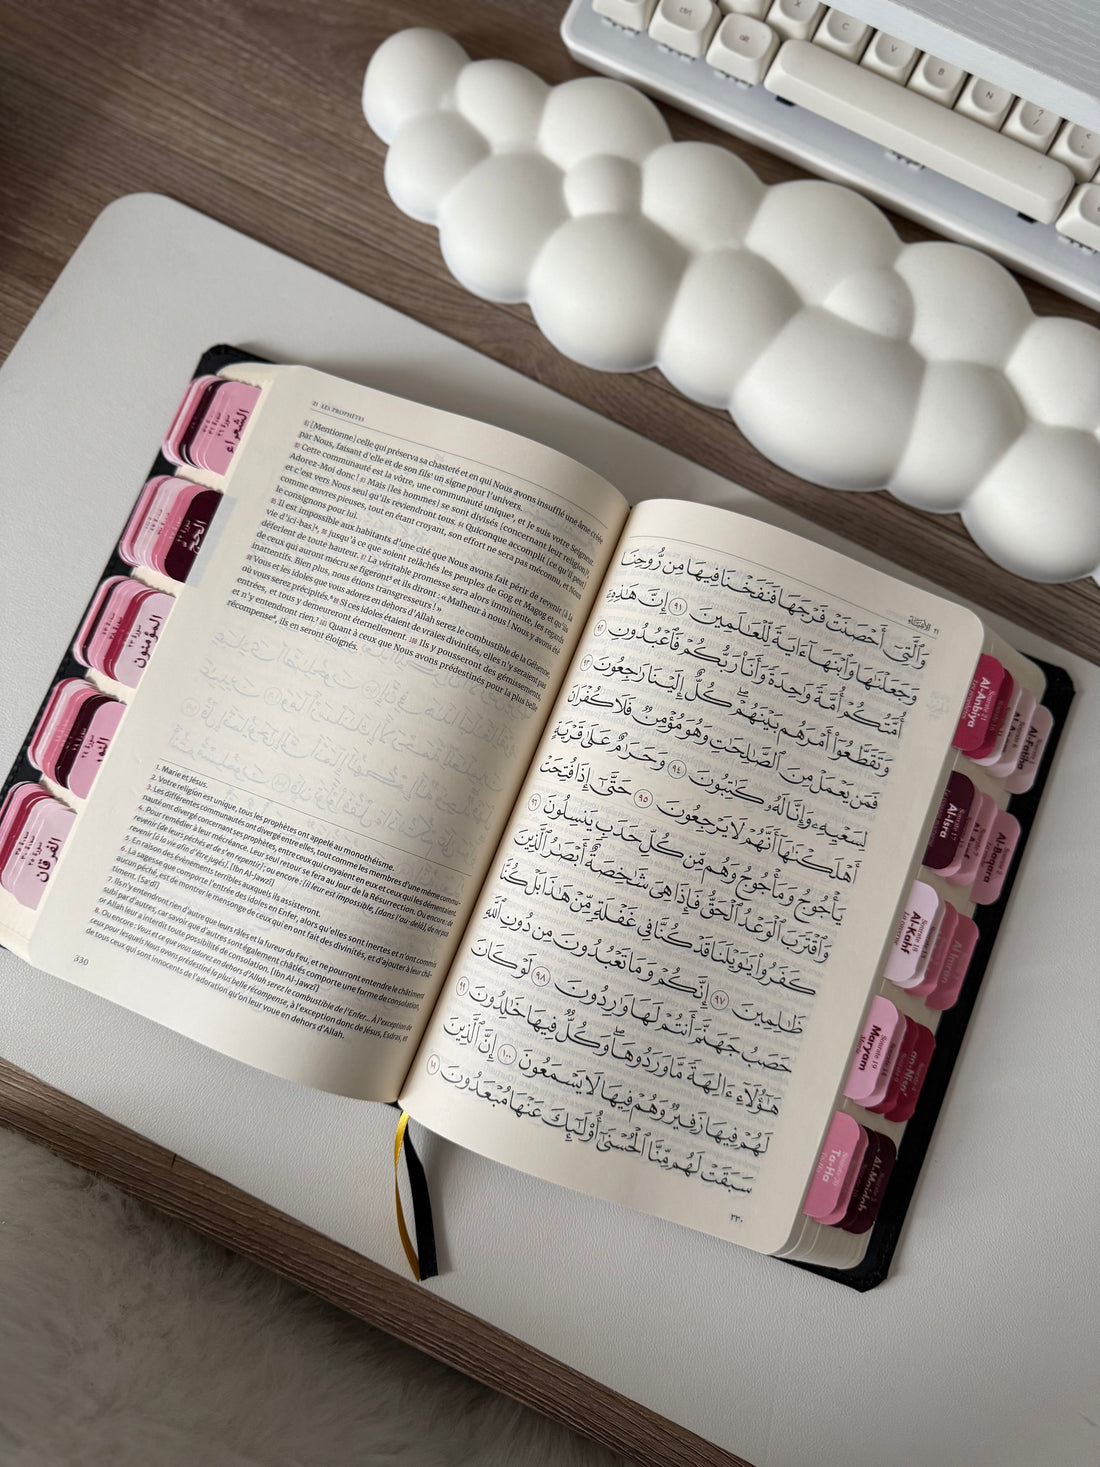 21 LES PROPHÈTES
91 [Mentionne] celle qui préserva sa chasteté et en qui Nous avons insufflé une âme créée
par Nous, faisant d'elle et de son fils¹ un signe pour l'univers.
92 Cette communauté est la vôtre, une communauté unique², et Je suis votre Seigneur.
Adorez-Moi donc ! 93 Mais [les hommes] se sont divisés [concernant leur religion]³,
et c'est vers Nous seul qu'ils reviendront tous. 94 Quiconque accomplit [ce qu'il peut]
comme œuvres pieuses, tout en étant croyant, son effort ne sera pas méconnu, et Nous
le consignons pour lui.
95 Il est impossible aux habitants d'une cité que Nous avons fait périr de revenir, [à la
vie d'ici-bas]⁴, 96 jusqu'à ce que soient relâchés les peuples de Gog et Magog et qu'ils
déferlent de toute hauteur. 97 La véritable promesse sera alors imminente, les regards
de ceux qui auront mécru se figeront⁵ et ils diront : « Malheur à nous ! Nous y avons été
inattentifs. Bien plus, nous étions transgresseurs ! »
98 Vous et les idoles que vous adorez en dehors d'Allah serez le combustible de la Géhenne,
où vous serez précipités.⁶ 99 Si ces idoles étaient de vraies divinités, elles n'y seraient pas
entrées, et tous y demeureront éternellement. 100 Ils y pousseront des gémissements,
et n'y entendront rien.⁷ 101 Quant à ceux que Nous avons prédestinés pour la plus belle
récompense⁸, ils en seront éloignés.
1. Marie et Jésus.
2. Votre religion est unique, tous les prophètes ont appelé au monothéisme.
3. Les différentes communautés ont divergé entre elles, tout comme les membres d'une même commu-
nauté ont divergé concernant ses prophètes, entre ceux qui croyaient en eux et ceux qui les démentaient.
4. Pour remédier à leur mécréance. Leur seul retour se fera au Jour de la Résurrection. Ou encore : de
revenir [de leurs péchés et de s'en repentir] ; ou encore : [il leur est impossible, [dans l'au-delà], de ne pas
revenir [à la vie afin d'être jugés]. [Ibn Al-Jawzî]
5. En raison des événements terribles auxquels ils assisteront.
6. La sagesse que comporte l'entrée des idoles en Enfer, alors qu'elles sont inertes et n'ont commis
aucun péché, est de montrer le mensonge de ceux qui en ont fait des divinités, et d'ajouter à leur châ-
timent. [Sa'dî]
7. Ils n'y entendront rien d'autre que leurs râles et la fureur du Feu, et ne pourront entendre le châtiment
subi par d'autres, car savoir que d'autres sont également châtiés comporte une forme de consolation,
or Allah leur a interdit toute possibilité de consolation. [Ibn Al-Jawzî]
8. Ou encore : Vous et ce que vous adorez en dehors d'Allah serez le combustible de l'Enfer... À l'exception de
ceux pour lesquels Nous avons prédestiné la plus belle récompense, à l'exception donc de Jésus, Esdras, et
de tous ceux qui sont innocents de l'adoration qu'on leur voue en dehors d'Allah.
330
٢١ الأنبياء
وَٱلَّتِىٓ أَحْصَنَتْ فَرْجَهَا فَنَفَخْنَا فِيهَا مِن رُّوحِنَا
وَجَعَلْنَٰهَا وَٱبْنَهَآ ءَايَةً لِّلْعَٰلَمِينَ ٩١ إِنَّ هَٰذِهِۦٓ
أُمَّتُكُمْ أُمَّةً وَٰحِدَةً وَأَنَا۠ رَبُّكُمْ فَٱعْبُدُونِ ٩٢
وَتَقَطَّعُوٓا۟ أَمْرَهُم بَيْنَهُمْ ۖ كُلٌّ إِلَيْنَا رَٰجِعُونَ ٩٣
فَمَن يَعْمَلْ مِنَ ٱلصَّٰلِحَٰتِ وَهُوَ مُؤْمِنٌ فَلَا كُفْرَانَ
لِسَعْيِهِۦ وَإِنَّا لَهُۥ كَٰتِبُونَ ٩٤ وَحَرَٰمٌ عَلَىٰ قَرْيَةٍ
أَهْلَكْنَٰهَآ أَنَّهُمْ لَا يَرْجِعُونَ ٩٥ حَتَّىٰٓ إِذَا فُتِحَتْ
يَأْجُوجُ وَمَأْجُوجُ وَهُم مِّن كُلِّ حَدَبٍ يَنسِلُونَ ٩٦
وَٱقْتَرَبَ ٱلْوَعْدُ ٱلْحَقُّ فَإِذَا هِىَ شَٰخِصَةٌ أَبْصَٰرُ ٱلَّذِينَ
كَفَرُوا۟ يَٰوَيْلَنَا قَدْ كُنَّا فِى غَفْلَةٍ مِّنْ هَٰذَا بَلْ كُنَّا
ظَٰلِمِينَ ٩٧ إِنَّكُمْ وَمَا تَعْبُدُونَ مِن دُونِ ٱللَّهِ
حَصَبُ جَهَنَّمَ أَنتُمْ لَهَا وَٰرِدُونَ ٩٨ لَوْ كَانَ
هَٰٓؤُلَآءِ ءَالِهَةً مَّا وَرَدُوهَا ۖ وَكُلٌّ فِيهَا خَٰلِدُونَ ٩٩
لَهُمْ فِيهَا زَفِيرٌ وَهُمْ فِيهَا لَا يَسْمَعُونَ ١٠٠ إِنَّ ٱلَّذِينَ
سَبَقَتْ لَهُم مِّنَّا ٱلْحُسْنَىٰٓ أُو۟لَٰٓئِكَ عَنْهَا مُبْعَدُونَ ١٠١
٣٣٠
الشعراء
الحج
المؤمنون
النور
الفرقان
Al-Anbiya
Sourate 21
Al-Fatiha
Al-Isra
Sourate 17
Al-Baqara
Al-Kahf
Sourate 18
Al Imran
Maryam
Sourate 19
an-Nisa'
Ta-Ha
Sourate 20
Al-Maidah
ctrl
alt
X
C
V
B
N
?
/
<
,